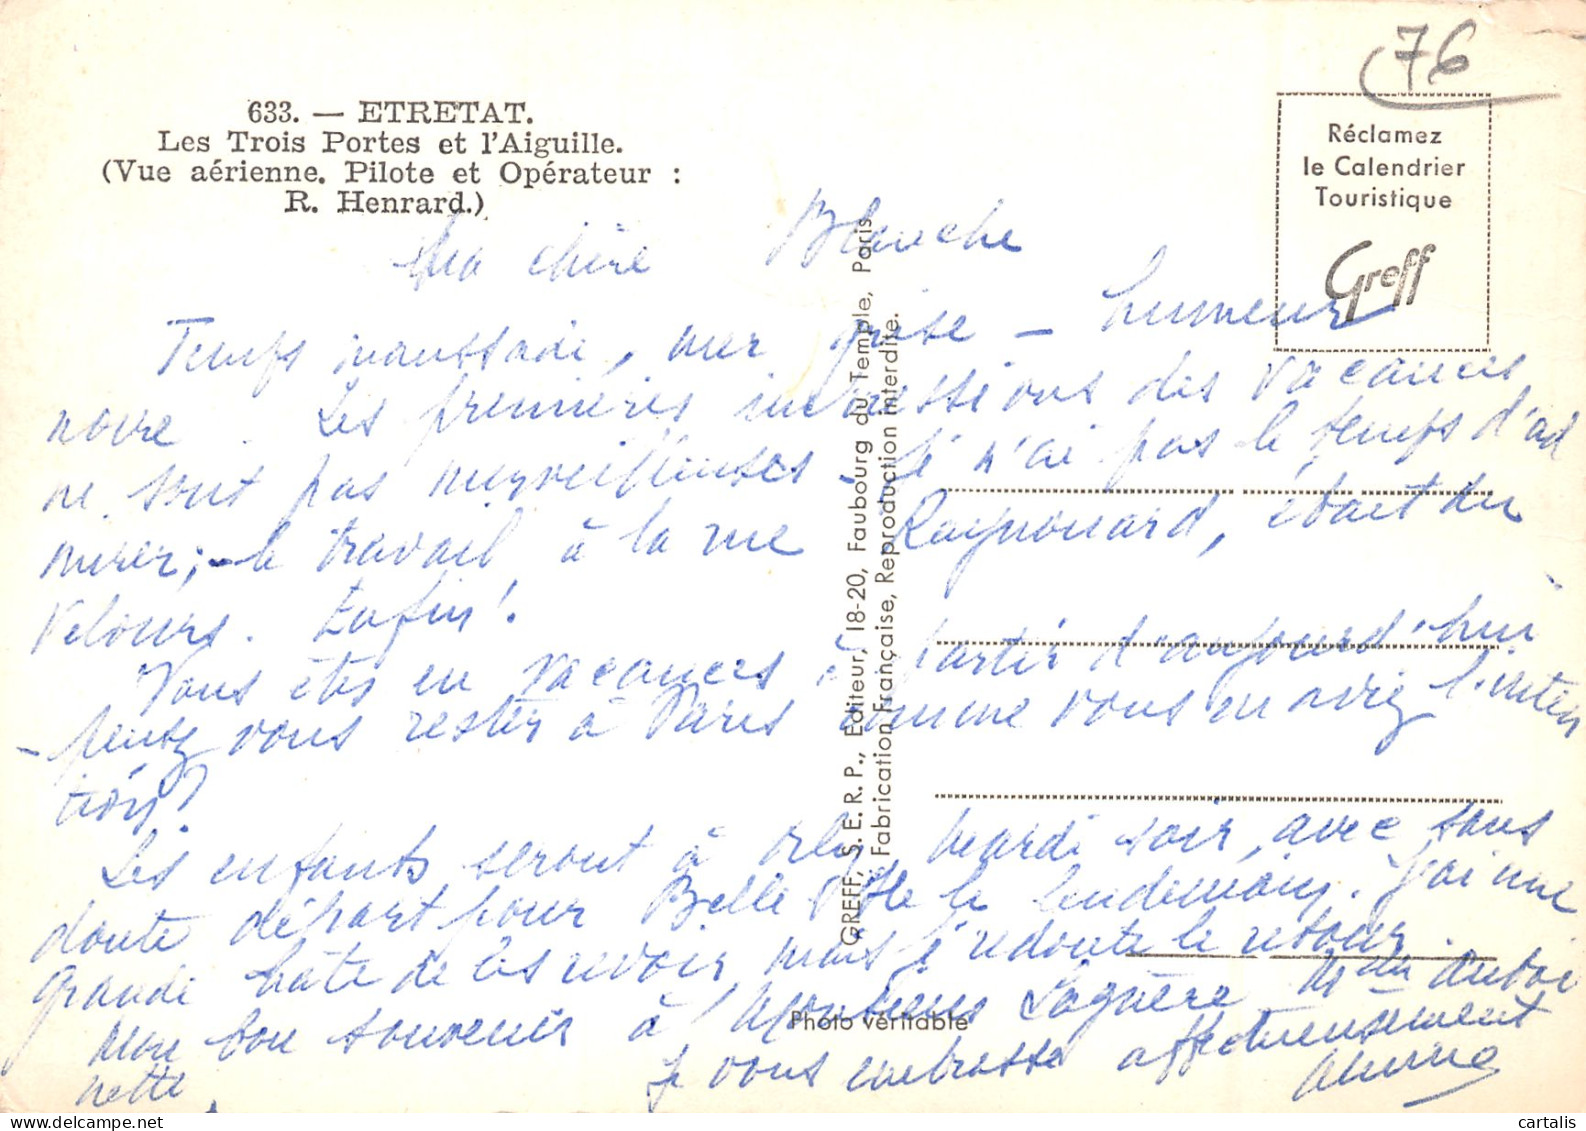 76
633. — ETRETAT.
Les Trois Portes et l'Aiguille.
(Vue aérienne. Pilote et Opérateur :
R. Henrard.)
Réclamez
le Calendrier
Touristique
Greff
Ma chère Blanche
Temps maussade, mer grise — humeur
noire. Les premières impressions des vacances
ne sont pas merveilleuses. Je n'ai pas le temps d'ad
mirer; le travail à la rue Raynouard, était du
velours. Enfin!
Vous êtes en vacances à partir d'aujourd'hui
- pensez vous rester à Paris comme vous en aviez l'inten
tion?
Les enfants seront à Orly mardi soir, avec sans
doute départ pour Belle Ile le lendemain. J'ai une
grande hâte de les revoir mais je redoute le retour.
Mon bon souvenir à Messieurs
nette.
Je vous embrasse affectueusement
GREFF, S. E. R. P., Editeur, 18-20, Faubourg du Temple, Paris
Fabrication Française, Reproduction interdite.
Photo véritable
cartalis